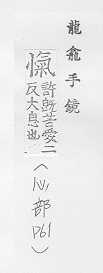 龍龕手鏡
愾
許旣苦愛二
反大息也
(心部
P61)